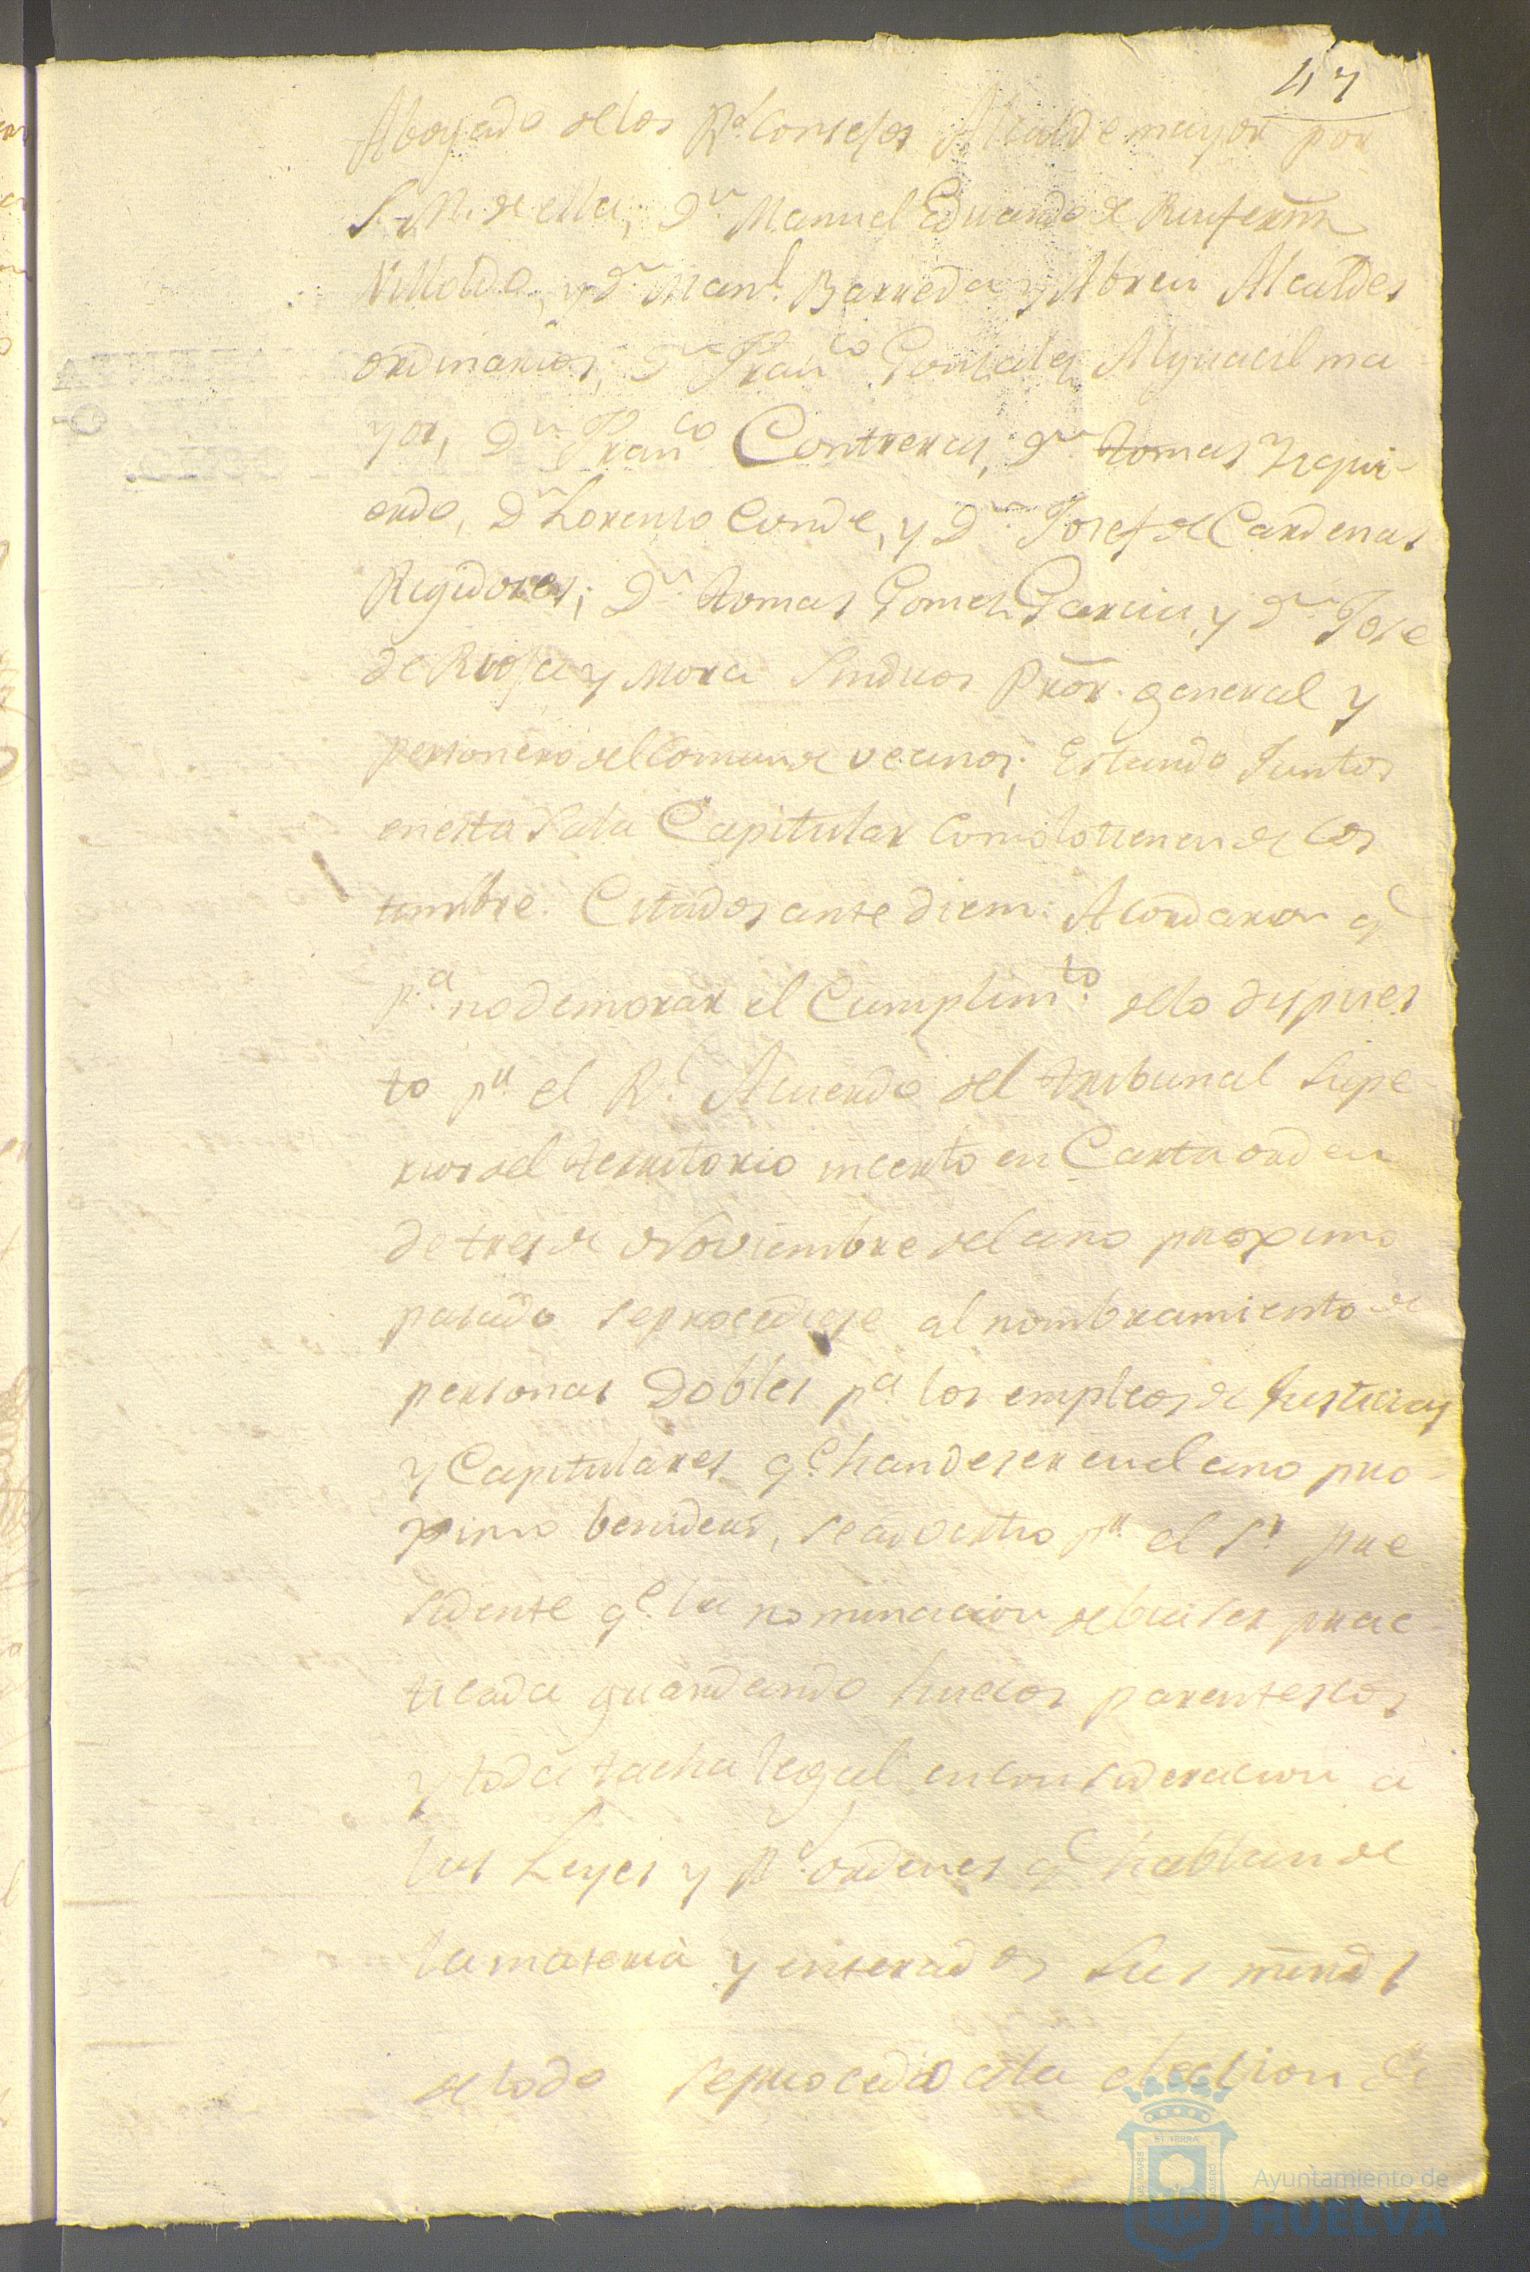 47
Abogado de los Rs. Consejos Alcalde mayor por
S. M. de ella, Dn. Manuel Eduardo de
y Dn. Manl. Barreda y Abreu Alcaldes
ordinarios, Dn. Franco. Gonzalez Alguacil ma
yor, Dn. Franco. Contreras, Dn. Tomas Yzqui-
erdo, Dn. Lorenzo Conde, y Dn. Josef de Cardenas
Regidores; Dn. Tomas Gomez Garcia, y Dn. Jose
de Rioja y Mora Sindicos Pror. general y
personero del Comun de vecinos; Estando Juntos
en esta Sala Capitular como lo tienen de cos
tumbre. Citados ante diem: Acordaron qe.
pa. no demorar el Cumplimto. de lo dispues
to pr. el Rl. Acuerdo del tribunal Supe-
rior del territorio incerto en Carta orden
de tres de Noviembre del ano proximo
pasado se procediese al nombramiento de
personas Dobles pa. los empleos de Justicias
y Capitulares qe. han de ser en el ano pro-
ximo benidero, se advertio pr. el Sr. pre-
sidente qe. la nominacion debia ser prac-
ticada guardando huecos parentescos
y toda tacha legal en consideracion a
las Leyes y Rs. ordenes qe. hablan de
la materia y enterados sus mercds
de todo se procedio a la eleccion de
Ayuntamiento de
HUELVA